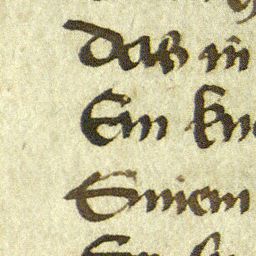 das in
Ein kn
Einem